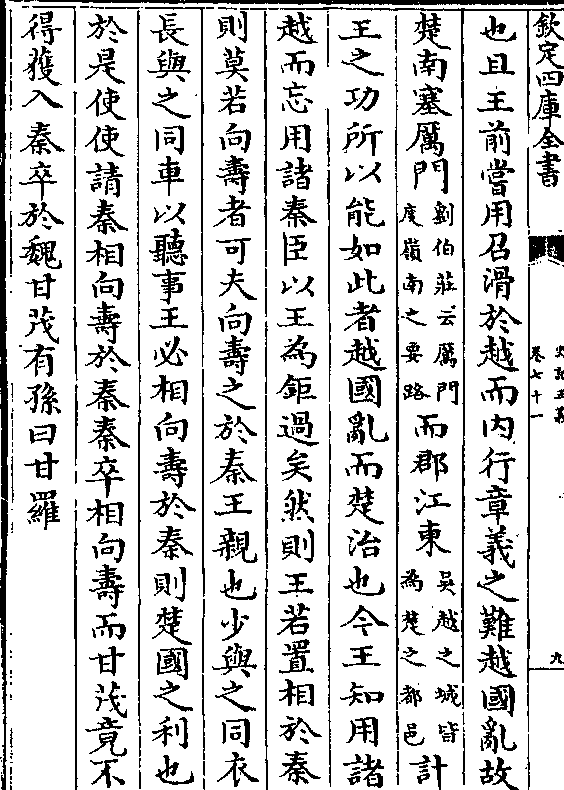 欽定四庫全書
史記正義
卷七十一
九
也且王前嘗用召滑於越而内行章義之難越國亂故
楚南塞厲門劉伯莊云厲門度嶺南之要路而郡江東吳越之城皆為楚之都邑計
王之功所以能如此者越國亂而楚治也今王知用諸
越而忘用諸秦臣以王為鉅過矣然則王若置相於秦
則莫若向壽者可夫向壽之於秦王親也少與之同衣
長與之同車以聽事王必相向壽於秦則楚國之利也
於是使使請秦相向壽於秦秦卒相向壽而甘茂竟不
得獲入秦卒於魏甘茂有孫曰甘羅